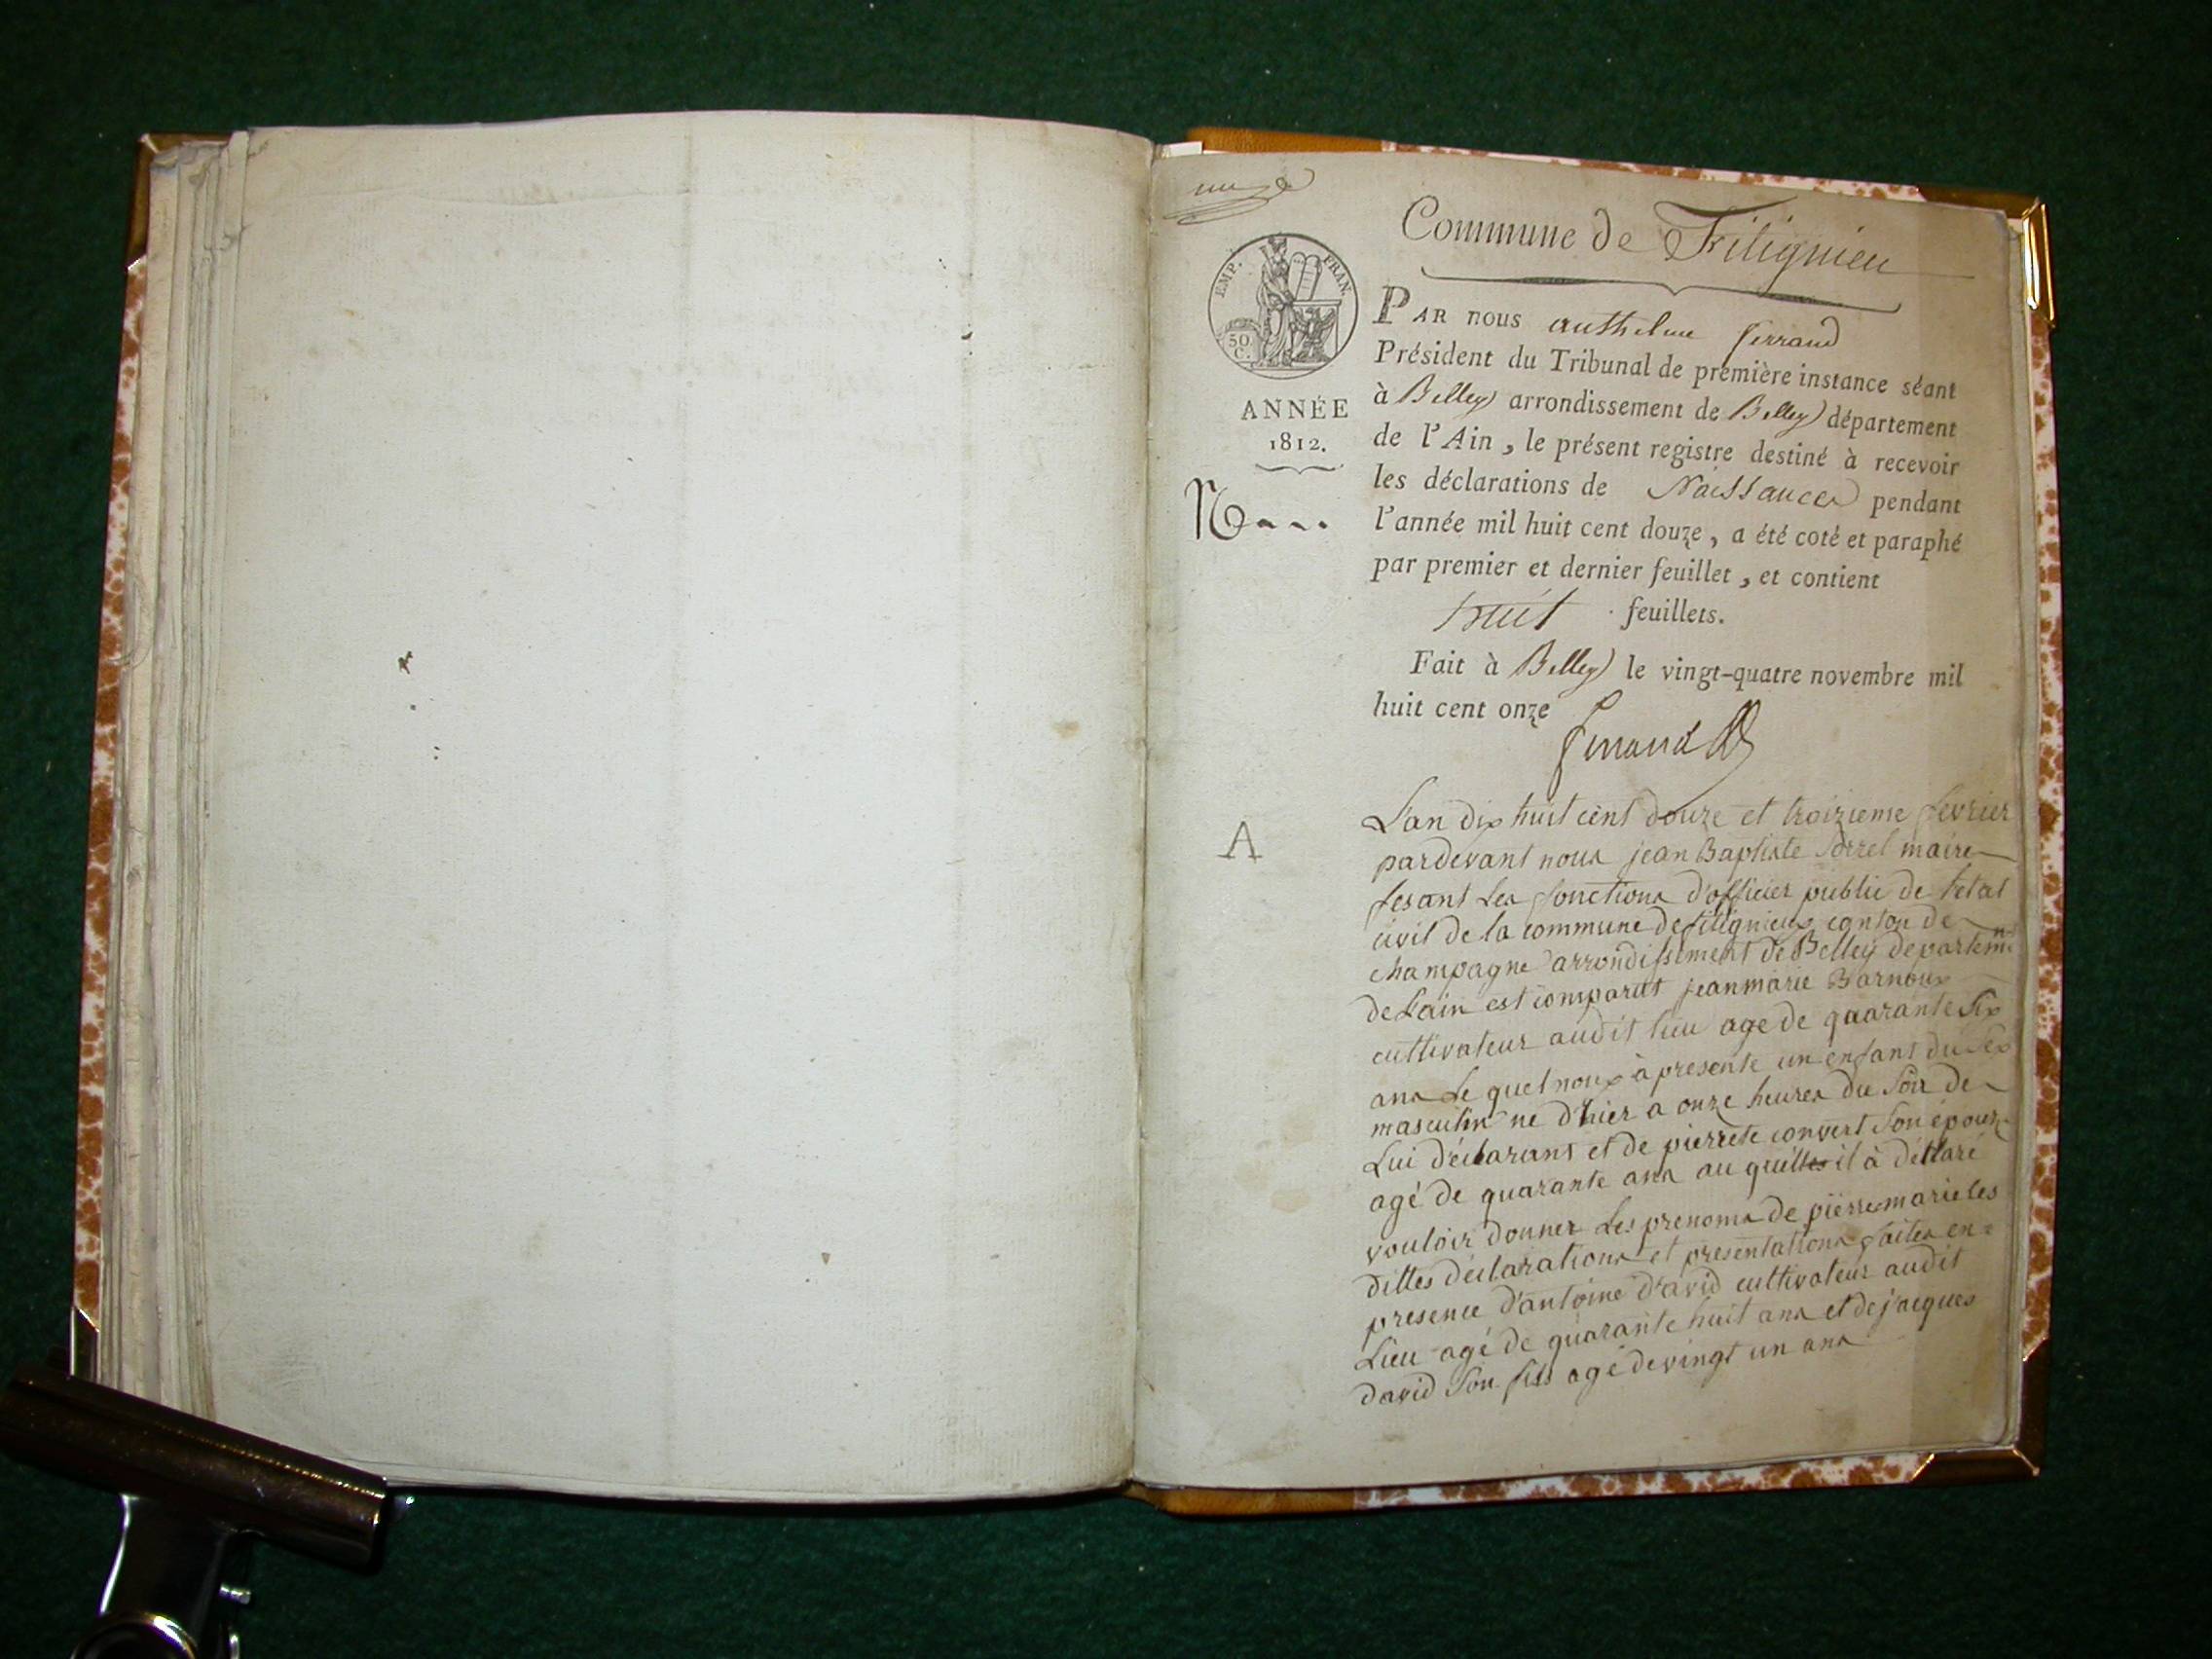 Commune de Fitignieu
EMP. FRAN.
50 C.
ANNÉE
1812.
N
PAR nous anthelme ferrand
Président du Tribunal de première instance séant
à Belley arrondissement de Belley département
de l'Ain, le présent registre destiné à recevoir
les déclarations de Naissances pendant
l'année mil huit cent douze, a été coté et paraphé
par premier et dernier feuillet, et contient
huit feuillets.
Fait à Belley le vingt-quatre novembre mil
huit cent onze
ferrand
A
L'an dix huit cent douze et troizieme fevrier
pardevant nous jean Baptiste maire
fesant les fonctions d'officier public de letat
civil de la commune de fitignieux canton de
champagne arrondissement de Belley departemnt
de Lain est comparut jeanmarie Barnoux
cultivateur audit lieu age de quarante six
ans Le quel nous à presente un enfant du sex
masculin ne d'hier a onze heures du soir de
Lui déclarant et de pierrete convert son epouze
agé de quarante ans au quelles il à déclaré
vouloir donner Les prenoms de pierre marie les
dittes déclarations et presentations faites en=
presence d'antoine david cultivateur audit
Lieu agé de quarante huit ans et de jacques
david son fils agé de vingt un ans